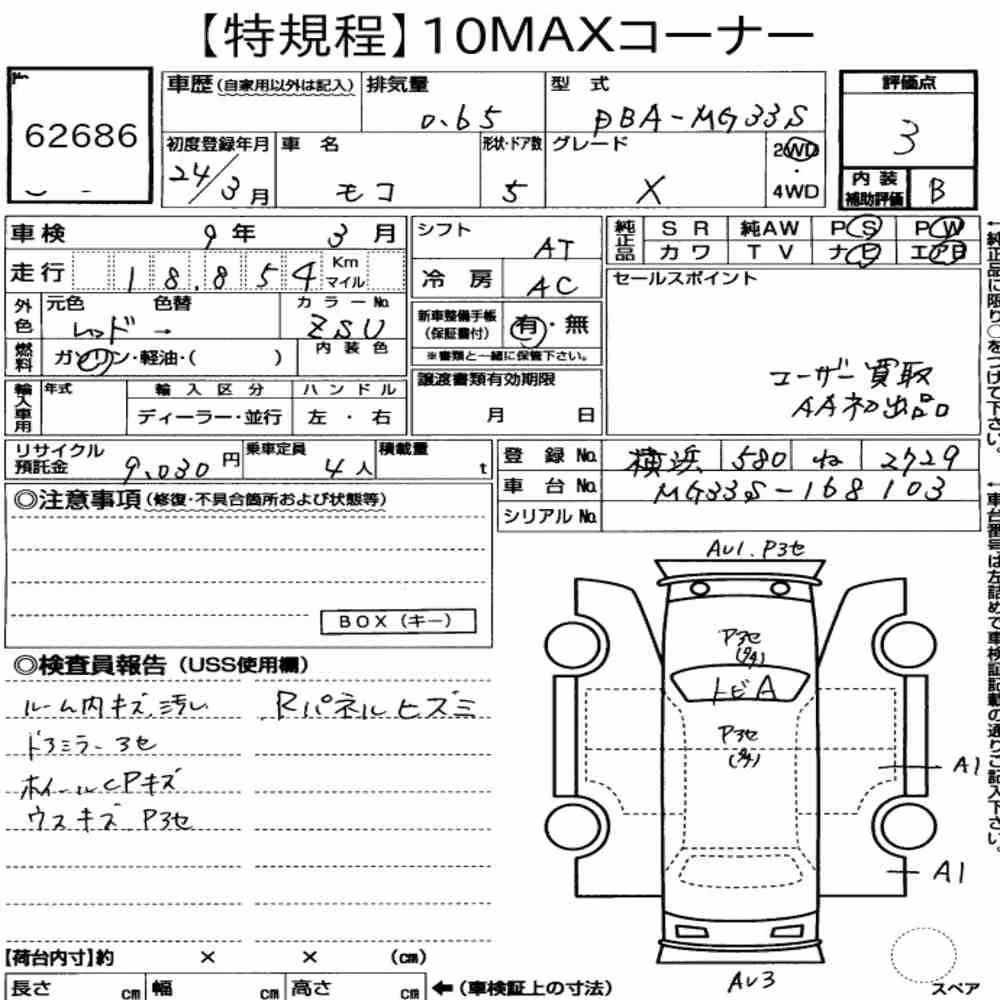 【特規程】10MAXコーナー
62686
車歴(自家用以外は記入) 排気量 0.65 型式 DBA-MG33S
評価点 3
初度登録年月 24/3月 車名 モコ 形状・ドア数 5 グレード X 2WD・4WD
内装補助評価 B
車検 9年 3月
走行 18,854 Km マイル
外色 元色 レッド → 色替 カラーNo. ZSU
内装色
燃料 ガソリン・軽油・( )
輸入車用 年式 輸入区分 ディーラー・並行 ハンドル 左・右
シフト AT
冷房 AC
新車整備手帳(保証書付) 有・無
※書類と一緒に保管下さい。
譲渡書類有効期限 月 日
純正品 SR 純AW PS PW
カワ TV ナビ エアB
セールスポイント
ユーザー買取
AA初出品
←純正品に限り○をつけて下さい。
リサイクル預託金 9,030円 乗車定員 4人 積載量 t
登録No. 横浜 580 ね 2729
車台No. MG33S-168103
シリアルNo.
←車台番号は左詰めで車検証記載の通りご記入下さい。
◎注意事項(修復・不具合箇所および状態等)
BOX(キー)
◎検査員報告(USS使用欄)
ルーム内キズ、汚レ Rパネルヒズミ
ドアミラー ヨセ
ホイールCPキズ
ウスキズ P3セ
AU1.P3セ
P3セ
トビA
P3セ
A1
A1
AU3
スペア
【荷台内寸】約 × × (cm)
長さ cm 幅 cm 高さ cm ←(車検証上の寸法)